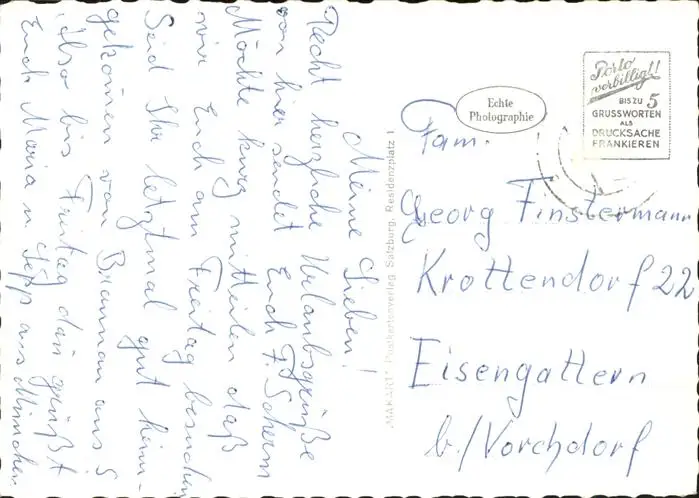 Meine Lieben!
Recht herzliche Urlaubsgrüße
von hier sendet Euch F. Scherm
Möchte kurz mitteilen daß
wir Euch am Freitag besuchen
Seid Ihr letztmal gut heim-
gekommen von Braunau aus
Also bis Freitag dan grüßt
Euch Maria u. Sepp aus München
"MAKART" Postkartenverlag Salzburg, Residenzplatz 1
Echte
Photographie
Porto
verbilligt!!
BIS ZU 5
GRUSSWORTEN
ALS
DRUCKSACHE
FRANKIEREN
Fam.
Georg Finstermann
Krottendorf 22
Eisengattern
b./Vorchdorf